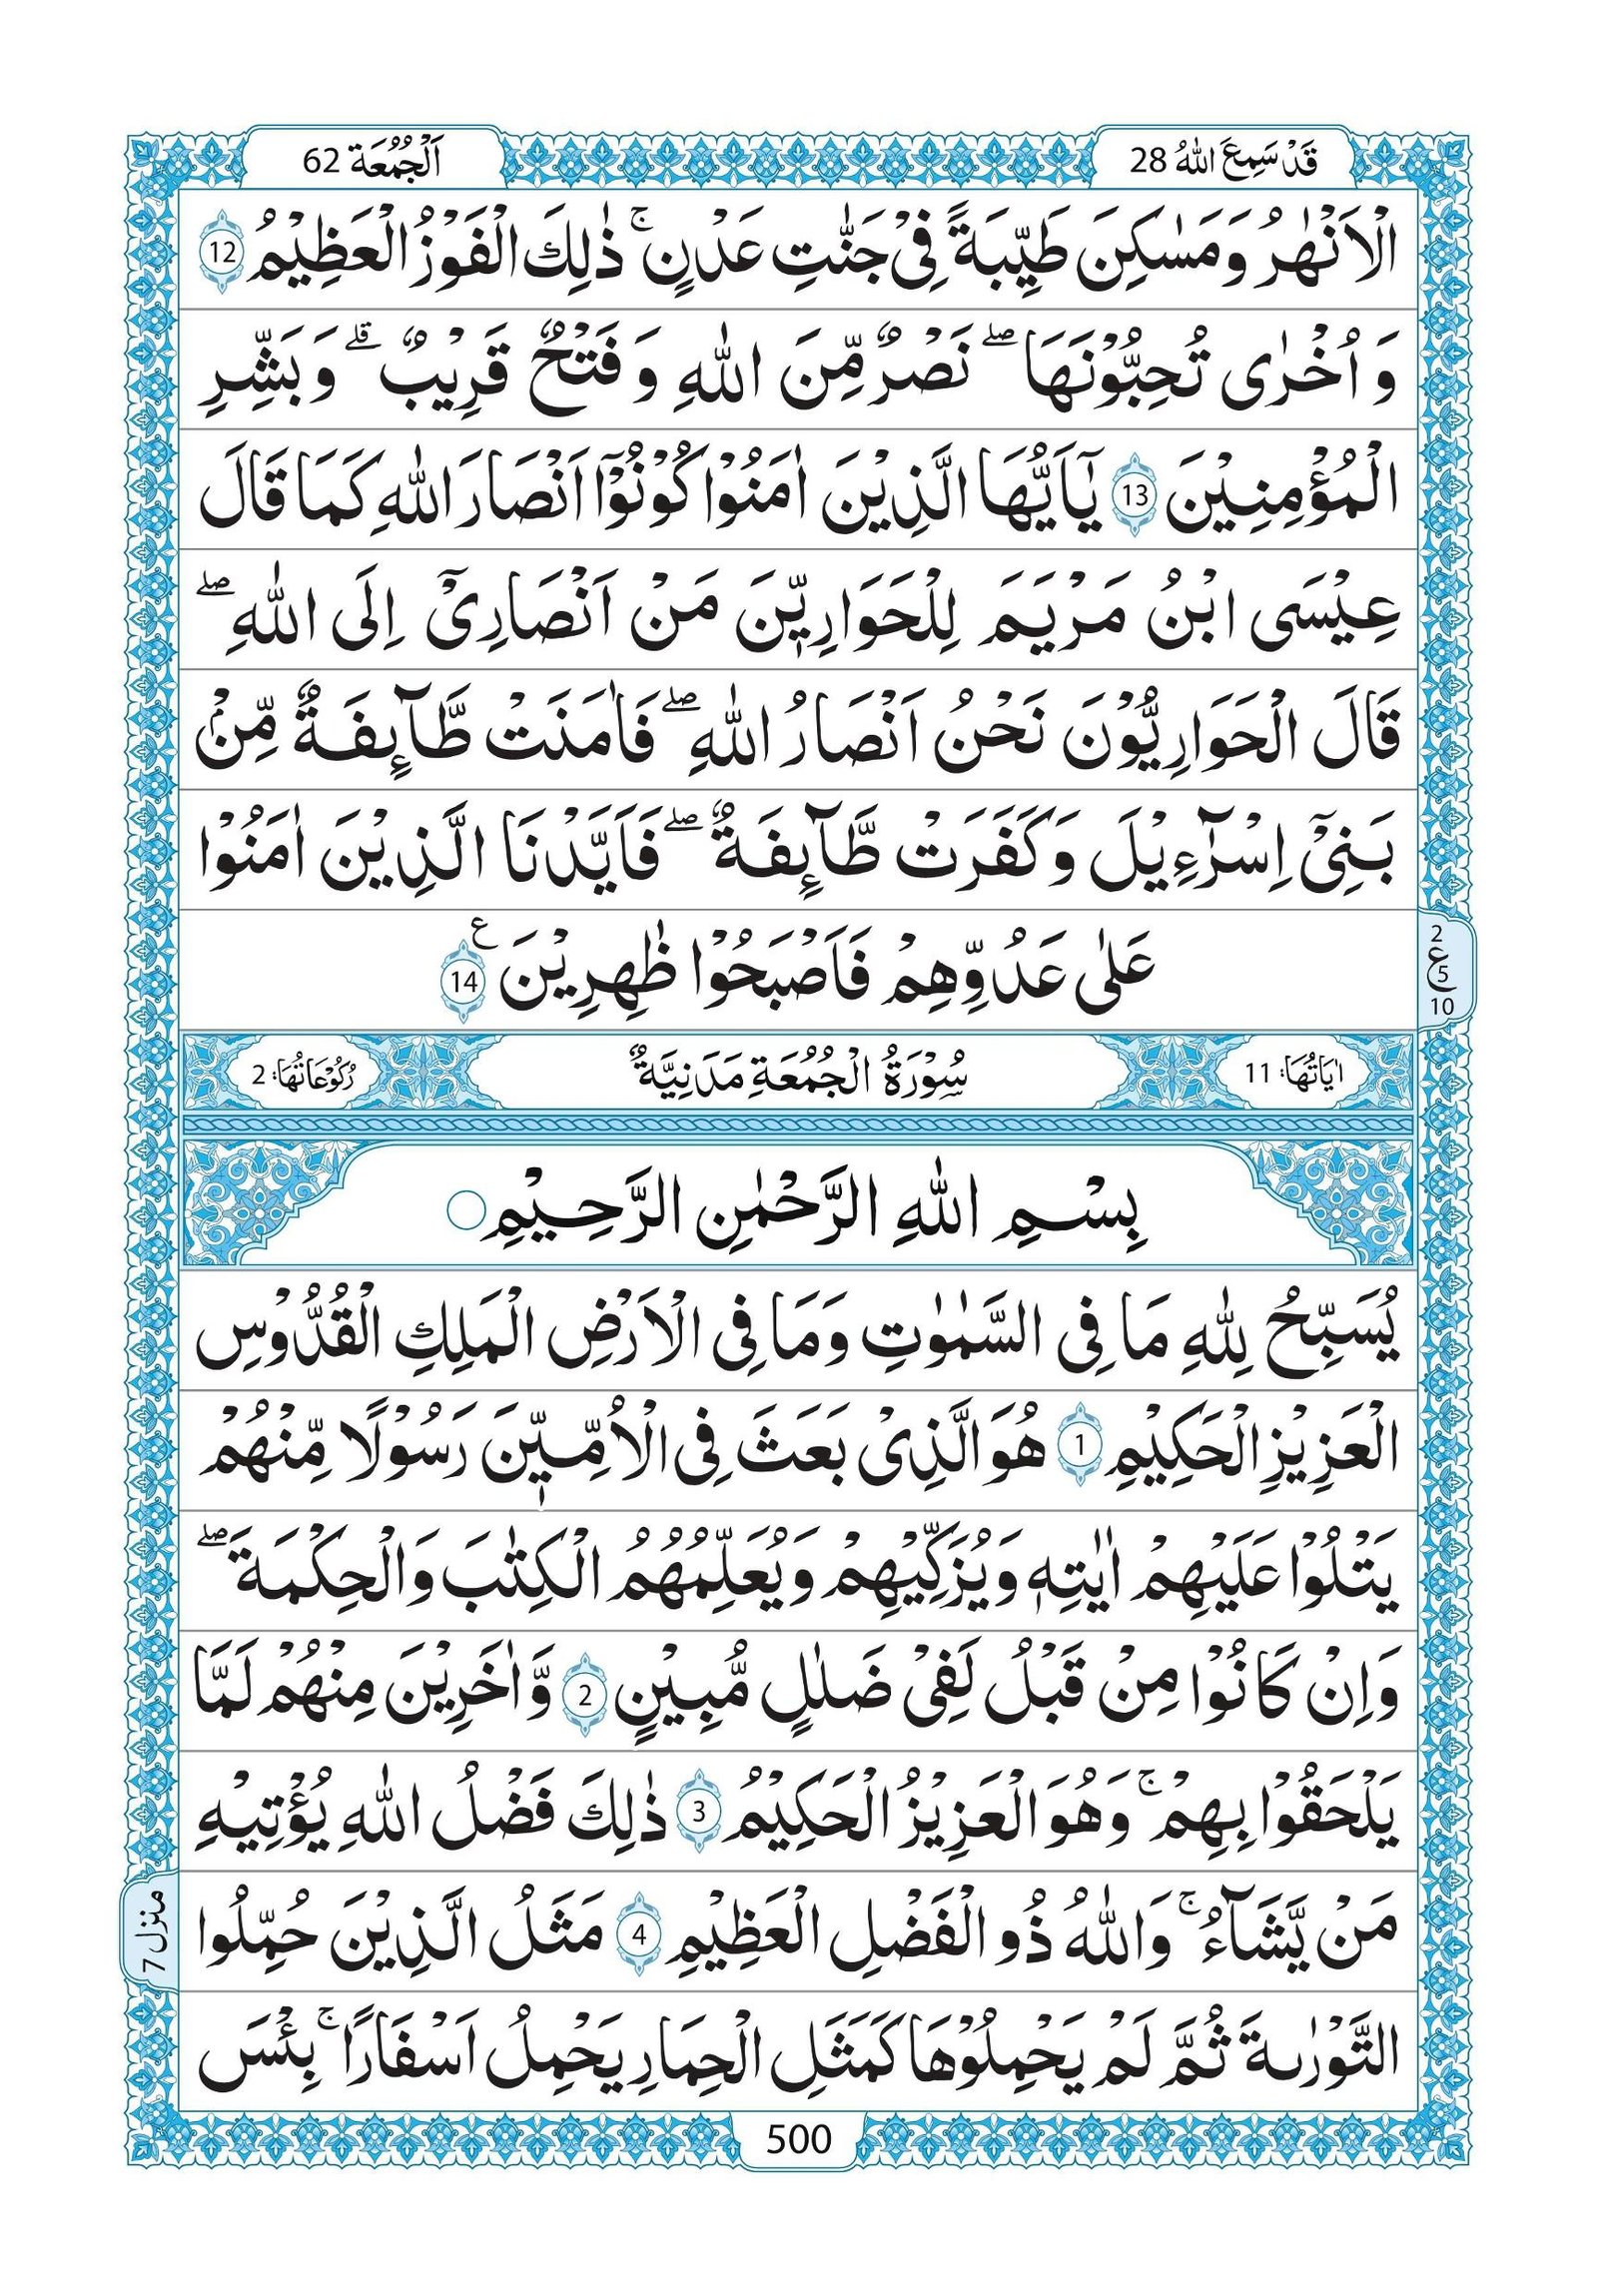 قَدْ سَمِعَ اللّٰهُ 28
اَلْجُمُعَة 62
الْاَنْهٰرُ وَمَسٰكِنَ طَيِّبَةً فِيْ جَنّٰتِ عَدْنٍ ۚ ذٰلِكَ الْفَوْزُ الْعَظِيْمُ 12
وَ اُخْرٰى تُحِبُّوْنَهَا ۖ نَصْرٌ مِّنَ اللّٰهِ وَ فَتْحٌ قَرِيْبٌ ۗ وَ بَشِّرِ
الْمُؤْمِنِيْنَ 13 يٰٓاَيُّهَا الَّذِيْنَ اٰمَنُوْا كُوْنُوْٓا اَنْصَارَ اللّٰهِ كَمَا قَالَ
عِيْسَى ابْنُ مَرْيَمَ لِلْحَوَارِيّٖنَ مَنْ اَنْصَارِيْٓ اِلَى اللّٰهِ ۖ
قَالَ الْحَوَارِيُّوْنَ نَحْنُ اَنْصَارُ اللّٰهِ ۖ فَاٰمَنَتْ طَّآىِٕفَةٌ مِّنْۢ
بَنِيْٓ اِسْرَآءِيْلَ وَكَفَرَتْ طَّآىِٕفَةٌ ۖ فَاَيَّدْنَا الَّذِيْنَ اٰمَنُوْا
عَلٰى عَدُوِّهِمْ فَاَصْبَحُوْا ظٰهِرِيْنَ ع 14
2
ع 5
10
اٰيَاتُهَا: 11
سُوْرَةُ الْجُمُعَةِ مَدَنِيَّةٌ
رُكُوْعَاتُهَا: 2
بِسْمِ اللّٰهِ الرَّحْمٰنِ الرَّحِيْمِ
يُسَبِّحُ لِلّٰهِ مَا فِي السَّمٰوٰتِ وَمَا فِي الْاَرْضِ الْمَلِكِ الْقُدُّوْسِ
الْعَزِيْزِ الْحَكِيْمِ 1 هُوَ الَّذِيْ بَعَثَ فِي الْاُمِّيّٖنَ رَسُوْلًا مِّنْهُمْ
يَتْلُوْا عَلَيْهِمْ اٰيٰتِهٖ وَيُزَكِّيْهِمْ وَيُعَلِّمُهُمُ الْكِتٰبَ وَالْحِكْمَةَ ۖ
وَاِنْ كَانُوْا مِنْ قَبْلُ لَفِيْ ضَلٰلٍ مُّبِيْنٍ 2 وَّاٰخَرِيْنَ مِنْهُمْ لَمَّا
يَلْحَقُوْا بِهِمْ ۚ وَهُوَ الْعَزِيْزُ الْحَكِيْمُ 3 ذٰلِكَ فَضْلُ اللّٰهِ يُؤْتِيْهِ
مَنْ يَّشَآءُ ۚ وَاللّٰهُ ذُو الْفَضْلِ الْعَظِيْمِ 4 مَثَلُ الَّذِيْنَ حُمِّلُوا
منزل 7
التَّوْرٰىةَ ثُمَّ لَمْ يَحْمِلُوْهَا كَمَثَلِ الْحِمَارِ يَحْمِلُ اَسْفَارًا ۚ بِئْسَ
500